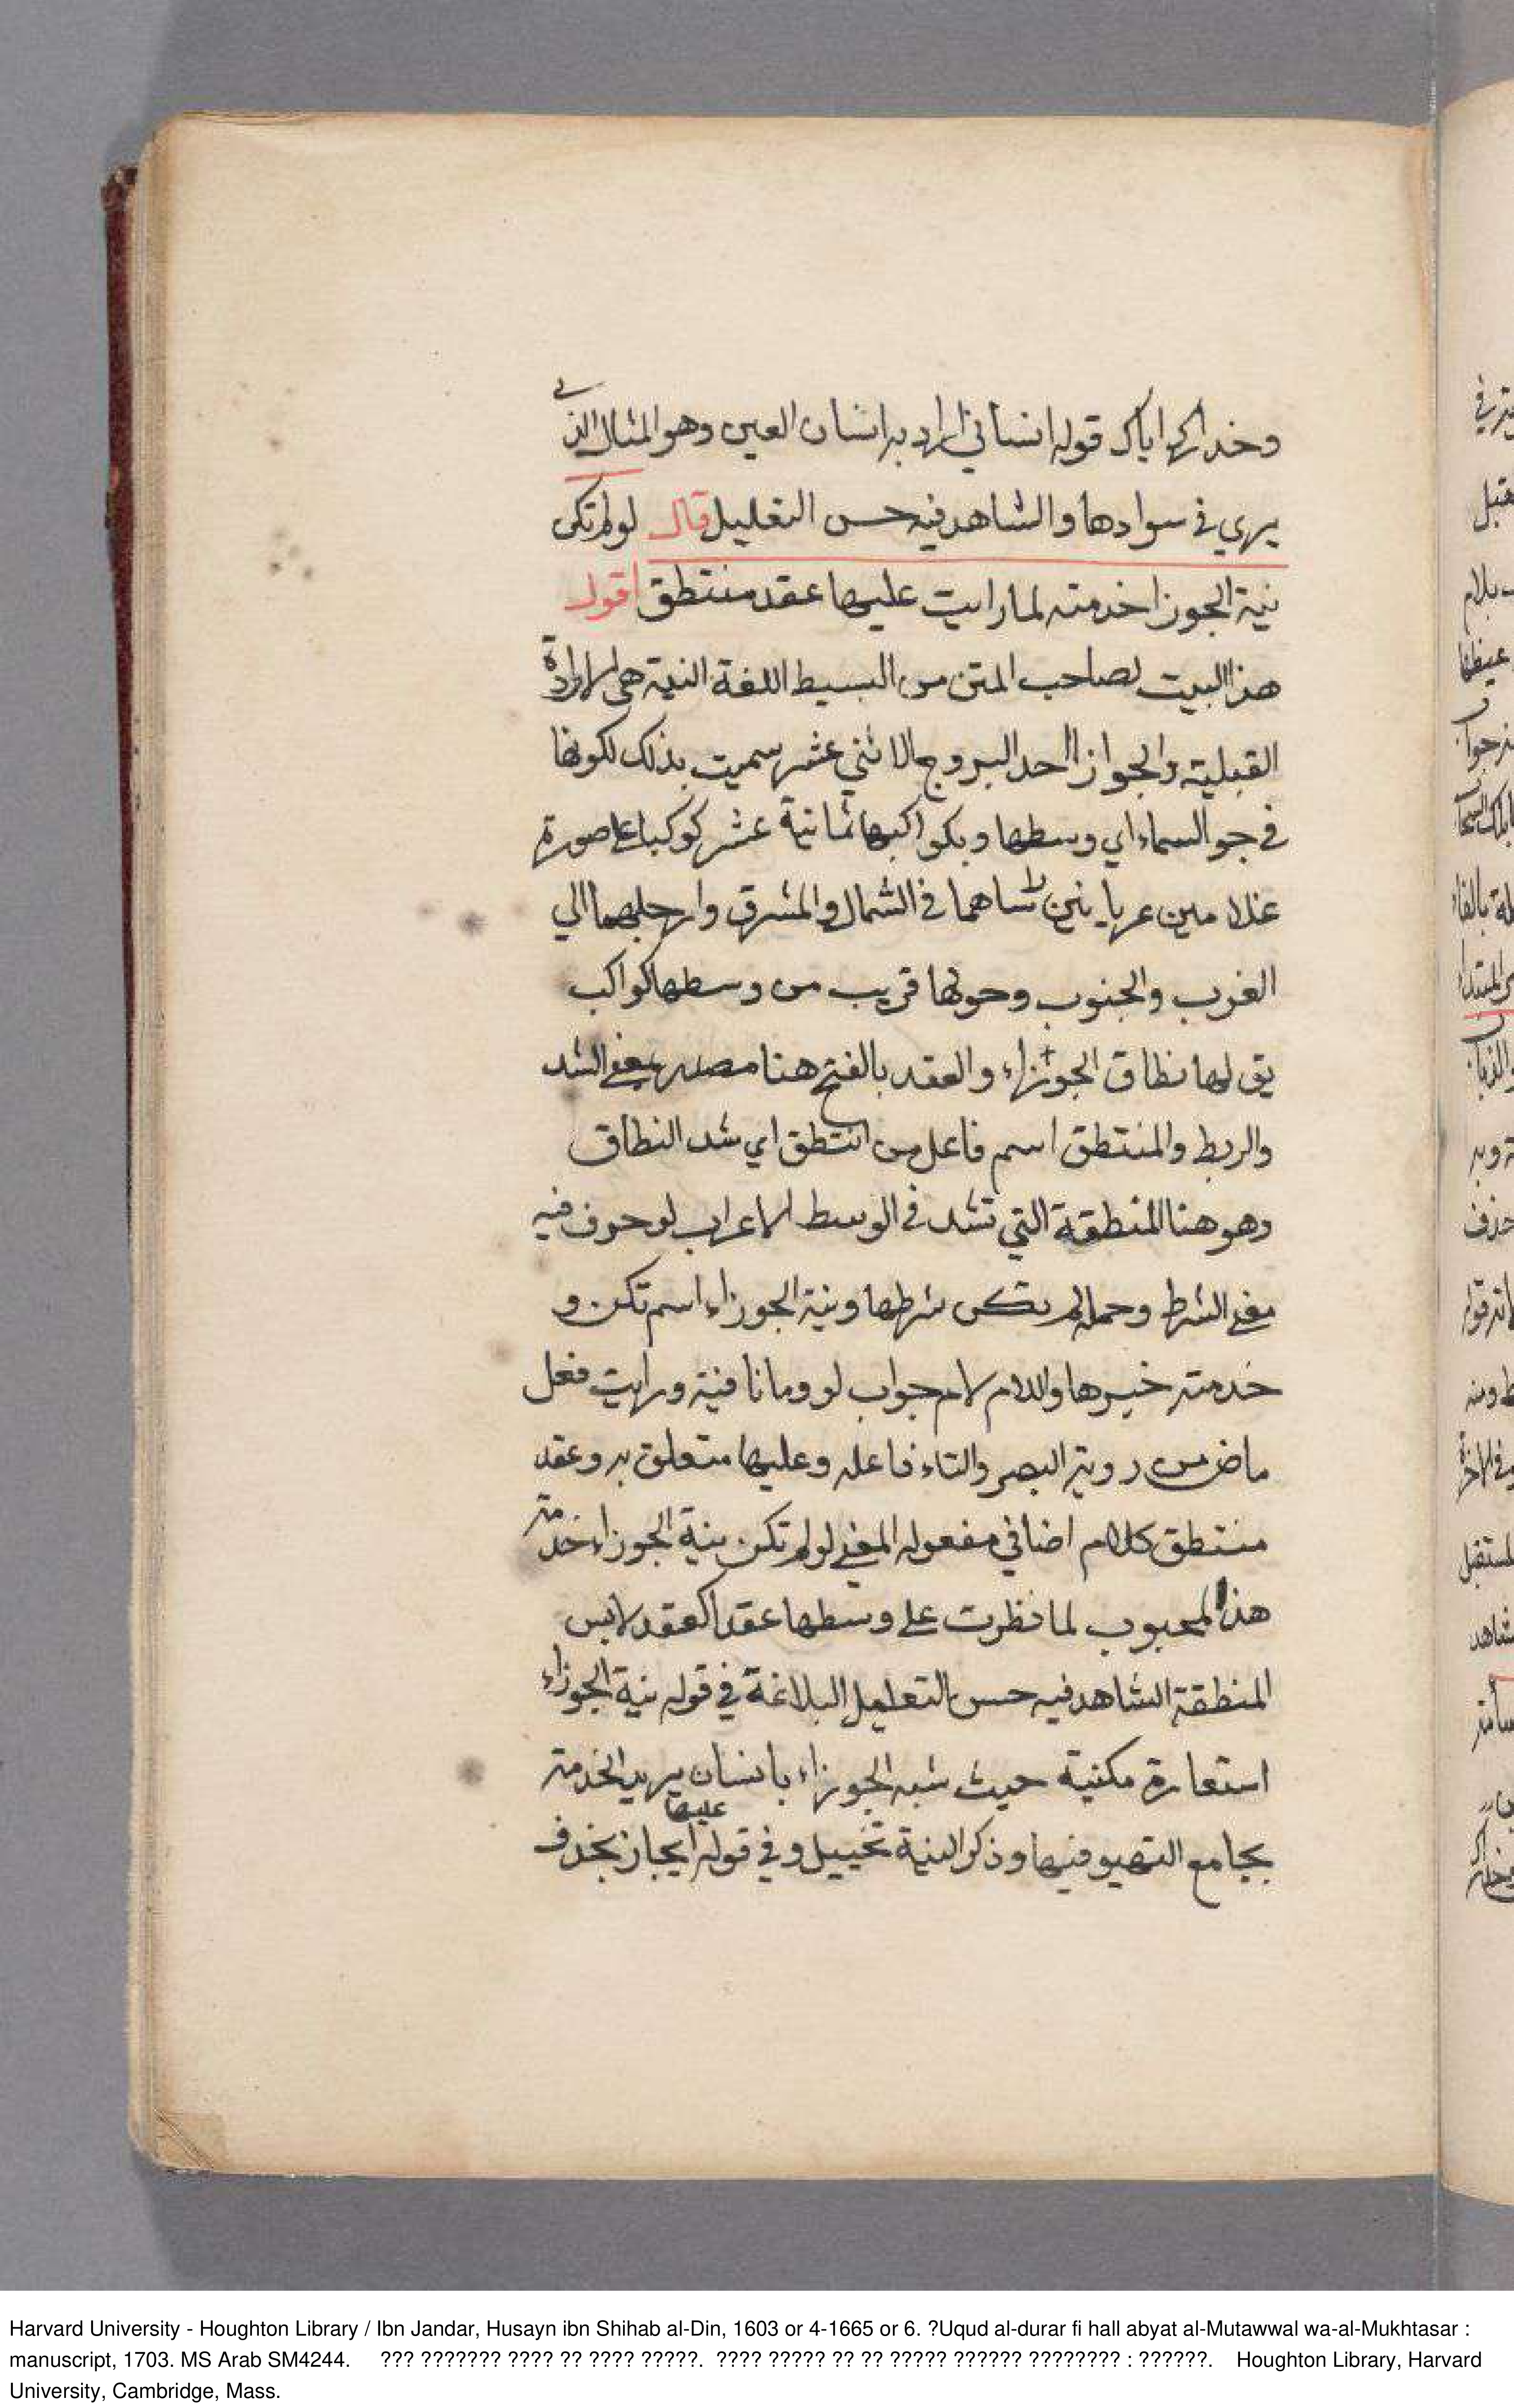 قوله انساني اراد به انسان العين وهو المثال الذي
يرى في سوادها والشاهد فيه حسن التعليل قال لو لم تكن
نية الجوزا خدمته لما رايت عليها عقد منتطق اقول
هذا البيت لصاحب المتن من البسيط اللغة النية هي الارادة
القبلية والجوازا احد البروج الاثني عشر سميت بذلك لكونها
في جو السماء اي وسطها وبكواكبها ثمانية عشر كوكبا على صورة
غلامين عريانين راساهما في الشمال والمشرق وارجلهما الي
الغرب والجنوب وحولها قريب من وسطها كواكب
يق لها نطاق الجوزاء والعقد بالفتح هنا مصدر بمعنى الشد
والربط والمنتطق اسم فاعل من انتطق اي شد النطاق
وهو هنا المنطقة التي تشد في الوسط الاعراب لو حرف فيه
معنى الشرط وجملة لم تكن شرطها ونية الجوزاء اسم تكن و
خدمته خبرها واللام لام جواب لو وما نافية ورايت فعل
ماض من روية البصر والتاء فاعله وعليها متعلق به وعقد
منتطق كلام اضافي مفعوله المعنى لو لم تكن نية الجوزاء خدمة
هذا المحبوب لما نظرت على وسطها عقدا كعقد لابس
المنطقة الشاهد فيه حسن التعليل البلاغة في قوله نية الجوزاء
استعارة مكنية حيث شبه الجوزاء بانسان يريد الخدمة
بجامع التهيو فيها وذكر النية تخييل وفي قوله عليها ايجاز بحذف
Harvard University - Houghton Library / Ibn Jandar, Husayn ibn Shihab al-Din, 1603 or 4-1665 or 6. ?Uqud al-durar fi hall abyat al-Mutawwal wa-al-Mukhtasar :
manuscript, 1703. MS Arab SM4244. ??? ??????? ???? ?? ???? ?????. ???? ????? ?? ?? ????? ?????? ???????? : ??????. Houghton Library, Harvard
University, Cambridge, Mass.